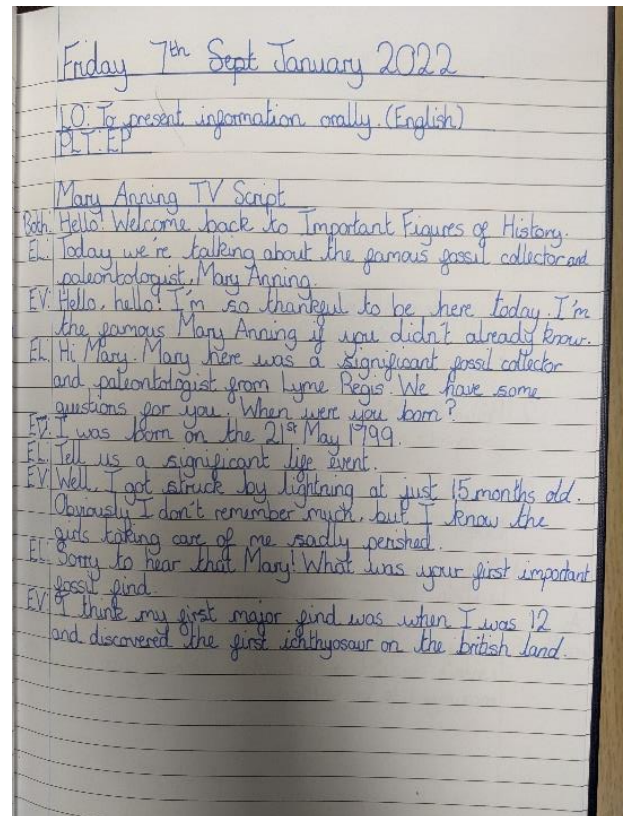 Friday 7th Sept January 2022
LO: To present information orally. (English)
PLT: EP
Mary Anning TV Script
Both: Hello! Welcome back to Important Figures of History.
EL: Today we're talking about the famous fossil collector and
paleontologist, Mary Anning.
EV: Hello, hello! I'm so thankful to be here today. I'm
the famous Mary Anning if you didn't already know.
EL: Hi Mary. Mary here was a significant fossil collector
and paleontologist from Lyme Regis. We have some
questions for you. When were you born?
EV: I was born on the 21st May 1799.
EL: Tell us a significant life event.
EV: Well, I got struck by lightning at just 15 months old.
Obviously I don't remember much, but I know the
girls taking care of me sadly perished.
EL: Sorry to hear that Mary! What was your first important
fossil find.
EV: I think my first major find was when I was 12
and discovered the first ichthyosaur on the british land.